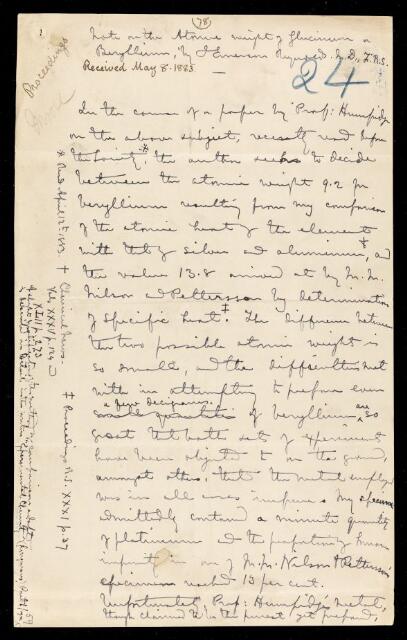 (78)
Note on the Atomic weight of Glucinum or
Beryllium, by J Emerson Reynolds M.D., F.R.S.
Received May 8. 1883
24
Proceedings
In the course of a paper by Prof: Humpidge
on the above subject, recently read before
the Society,* the author seeks to decide
between the atomic weight 9.2 for
beryllium resulting from my comparison
of the atomic heat of the element
with that of silver and aluminium,† and
the value 13.8 arrived at by M.M.
Nilson and Pettersson by determination
of specific heat.‡ The difference between
the two possible atomic weights is
so small, and the difficulties met
with in attempting to prepare even
a few decigrams
small quantities of beryllium are so
great that both sets of experiments
have been objected to on the ground,
amongst others, that the metal employed
was in all cases impure. My specimen
admittedly contained a minute quantity
of platinum and the proportion of known
impurity in one of M.M. Nilson & Pettersson's
specimens reached 13 per cent.
Unfortunately Prof: Humpidge's metal,
though claimed to be the purest yet prepared,
* Read April 12th, 1883.
† Chemical News.
Vol. XXXV p. 124
XLII p. 273
‡ Proceedings R.S. XXXI p. 37